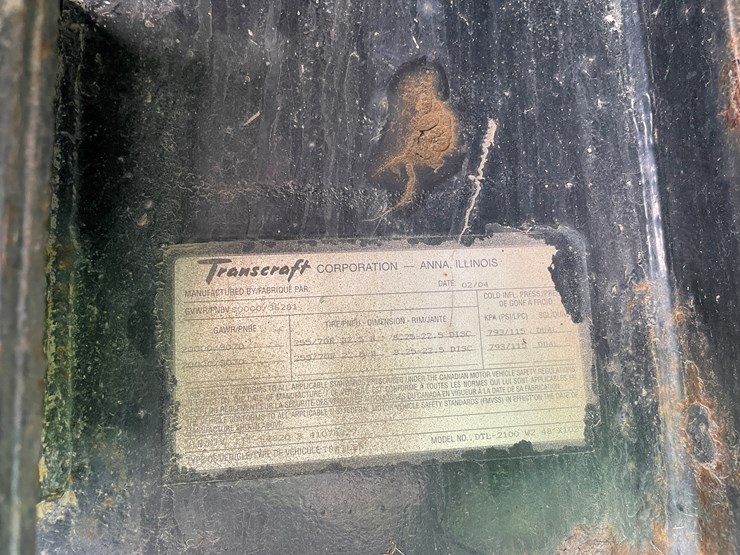 Transcraft CORPORATION — ANNA, ILLINOIS
MANUFACTURED BY/FABRIQUE PAR: DATE 02/04
GVWR/PNBV 80000/36281
COLD INFL. PRESS./PRES.
DE GONF A FROID
GAWR/PNBE TIRE/PNEU - DIMENSION - RIM/JANTE KPA (PSI/LPC)
20000/9070 255/70R 22.5 H 8.25-22.5 DISC 793/115 DUAL
20000/9070 255/70R 22.5 H 8.25-22.5 DISC 793/115 DUAL
TO ALL APPLICABLE STANDARDS PRESCRIBED UNDER THE CANADIAN MOTOR VEHICLE SAFETY REGULATIONS
DATE OF MANUFACTURE / CE VEHICULE EST CONFORME A TOUTES LES NORMES QUI LUI SONT APPLICABLES EN
VERTU DU REGLEMENT SUR LA SECURITE DES VEHICULES AUTOMOBILES DU CANADA EN VIGUEUR A LA DATE DE SA FABRICATION.
VEHICLE CONFORMS TO ALL APPLICABLE FEDERAL MOTOR VEHICLE SAFETY STANDARDS (FMVSS) IN EFFECT ON THE DATE OF
MANUFACTURE SHOWN ABOVE.
MODEL NO., DTL-2100 W2 48'
TYPE OF VEHICLE/TYPE DE VEHICULE